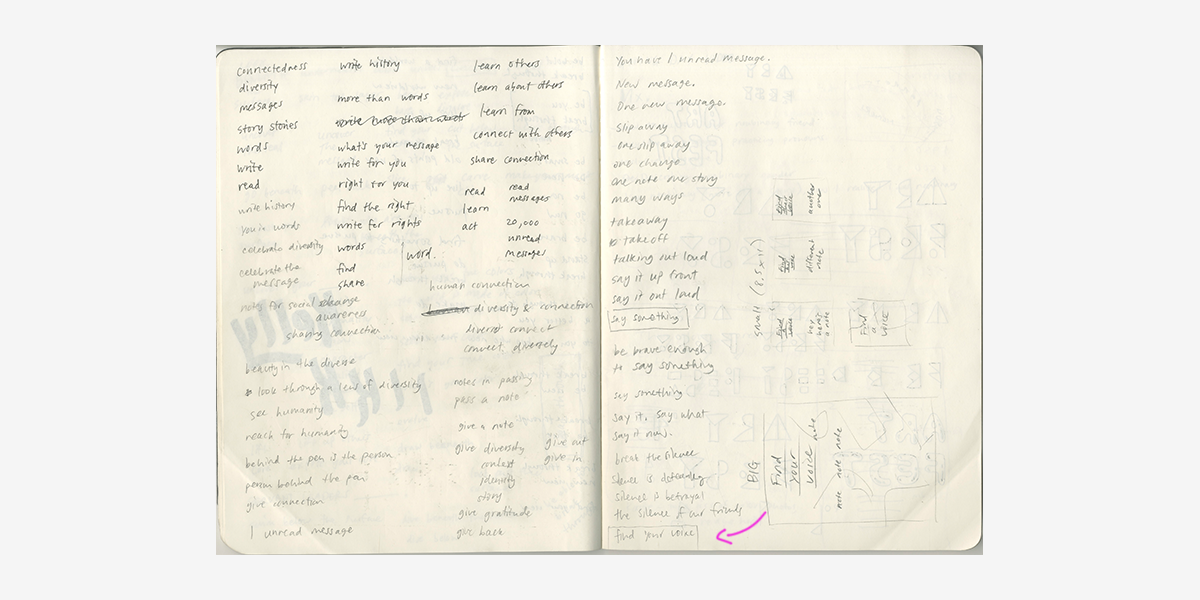 connectedness
diversity
messages
story stories
words
write
read
write history
you in words
celebrate diversity
celebrate the
message
notes for social change
awareness
sharing connection
beauty in the diverse
look through a lens of diversity
see humanity
reach for humanity
behind the pen is the person
person behind the pen
give connection
1 unread message
write history
more than words
write more than words
what's your message
write for you
right for you
find the right
write for rights
words
find
share
word.
learn others
learn about others
learn from
connect with others
share connection
read
learn
act
read
messages
20,000
unread
messages
human connection
human diversity & connection
diverse connect
connect diversely
notes in passing
pass a note
give a note
give diversity
context
identity
story
give gratitude
give back
give out
give in
You have 1 unread message.
New message.
One new message.
Slip away
one slip away
one change
one note one story
many ways
takeaway
takeoff
talking out loud
say it up front
say it out loud
say something
be brave enough
to say something
say something
say it, say what
say it now.
break the silence
silence is deafening
silence is betrayal
the silence of our friends
find your voice
small (8.5 x 11)
find
your
voice
another
one
find
your
voice
different
note
find
your
voice
hey
here's
a note
Find
a
voice
BIG
Find
your
voice
note
note note note